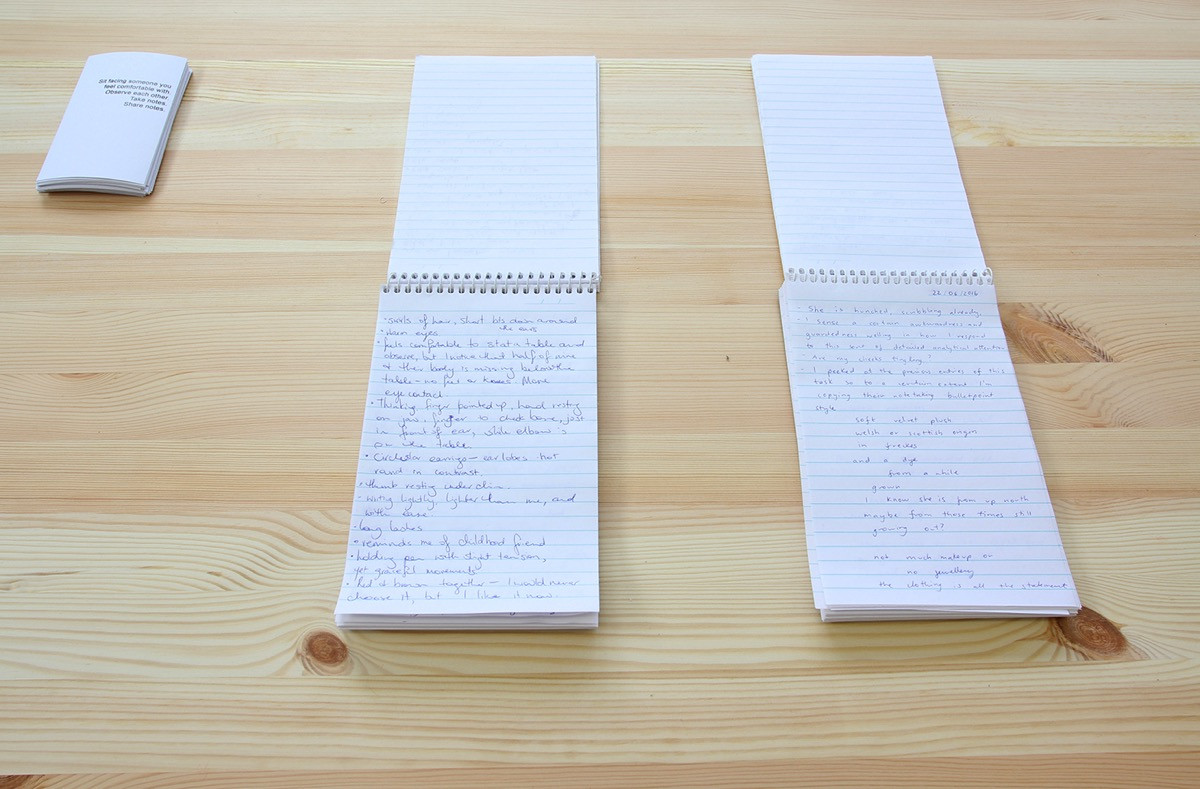 Sit facing someone you
feel comfortable with
Observe each other.
Take notes.
Share notes.
• swirls of hair, short bits down around
the ears
• eyes
• feels comfortable to sit at a table and
observe, but I note that half of me
& their body is missing below the
table – no feet or knees. More
eye contact
• Thinking finger pointed up, hand resting
on jaw, finger to cheek bone, just
in front of ear, while elbow is
on the table
• Circular earrings – earlobes not
round in contrast.
• thumb resting under chin
• writing lightly, lighter than me, and
with ease
• long lashes
• reminds me of childhood friend
• holding pen with slight tension,
yet graceful movements
• Red & brown together – I would never
choose it, but I like it now.
22/06/2016
- She is hunched, scribbling already.
- I sense a certain awkwardness and
guardedness welling in how I respond
to this sort of detailed analytical attention
- are my cheeks tingling?
- I peeked at the previous entries of this
task so to a certain extent I'm
copying them note taking bulletpoint
style
soft velvet plush
welsh or scottish origin
in freckles
and a dye
from a while
grown
I know she is from up north
maybe from those times still
growing out?
not much makeup or
no jewellery
the clothing is all the statement